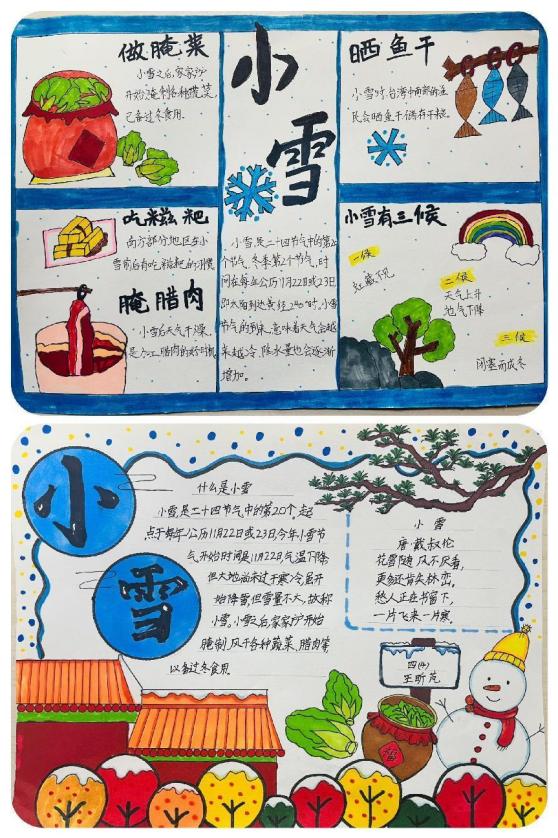 做腌菜
小雪之后,家家户户
开始腌制各种蔬菜,
已备过冬食用。
小
雪
小雪是二十四节气中的第20
个节气、冬季第2个节气,时
间在每年公历11月22日或23日
即太阳到达黄经240°时。小雪
节气的到来,意味着天气会越
来越冷、降水量也会逐渐
增加。
晒鱼干
小雪时,台湾中南部的渔
民会晒鱼干、储存干粮
吃糍粑
南方部分地区在小
雪前后有吃糍粑的习惯
腌腊肉
小雪后天气干燥,
是加工腊肉的好时机
小雪有三候
一候
虹藏不见
二候
天气上升
地气下降
三候
闭塞而成冬
小
雪
什么是小雪
小雪是二十四节气中的第20个,起
点于每年公历11月22日或23日,今年小雪节
气开始时间是11月22日,气温下降
但大地尚未过于寒冷,虽开
始降雪,但雪量不大,故称
小雪。小雪之后,家家户户开始
腌制、风干各种蔬菜、腊肉等
以备过冬食用。
小 雪
唐·戴叔伦
花雪随风不厌看,
更多还肯失林峦。
愁人正在书窗下,
一片飞来一片寒。
四(4)
王昕苑
福